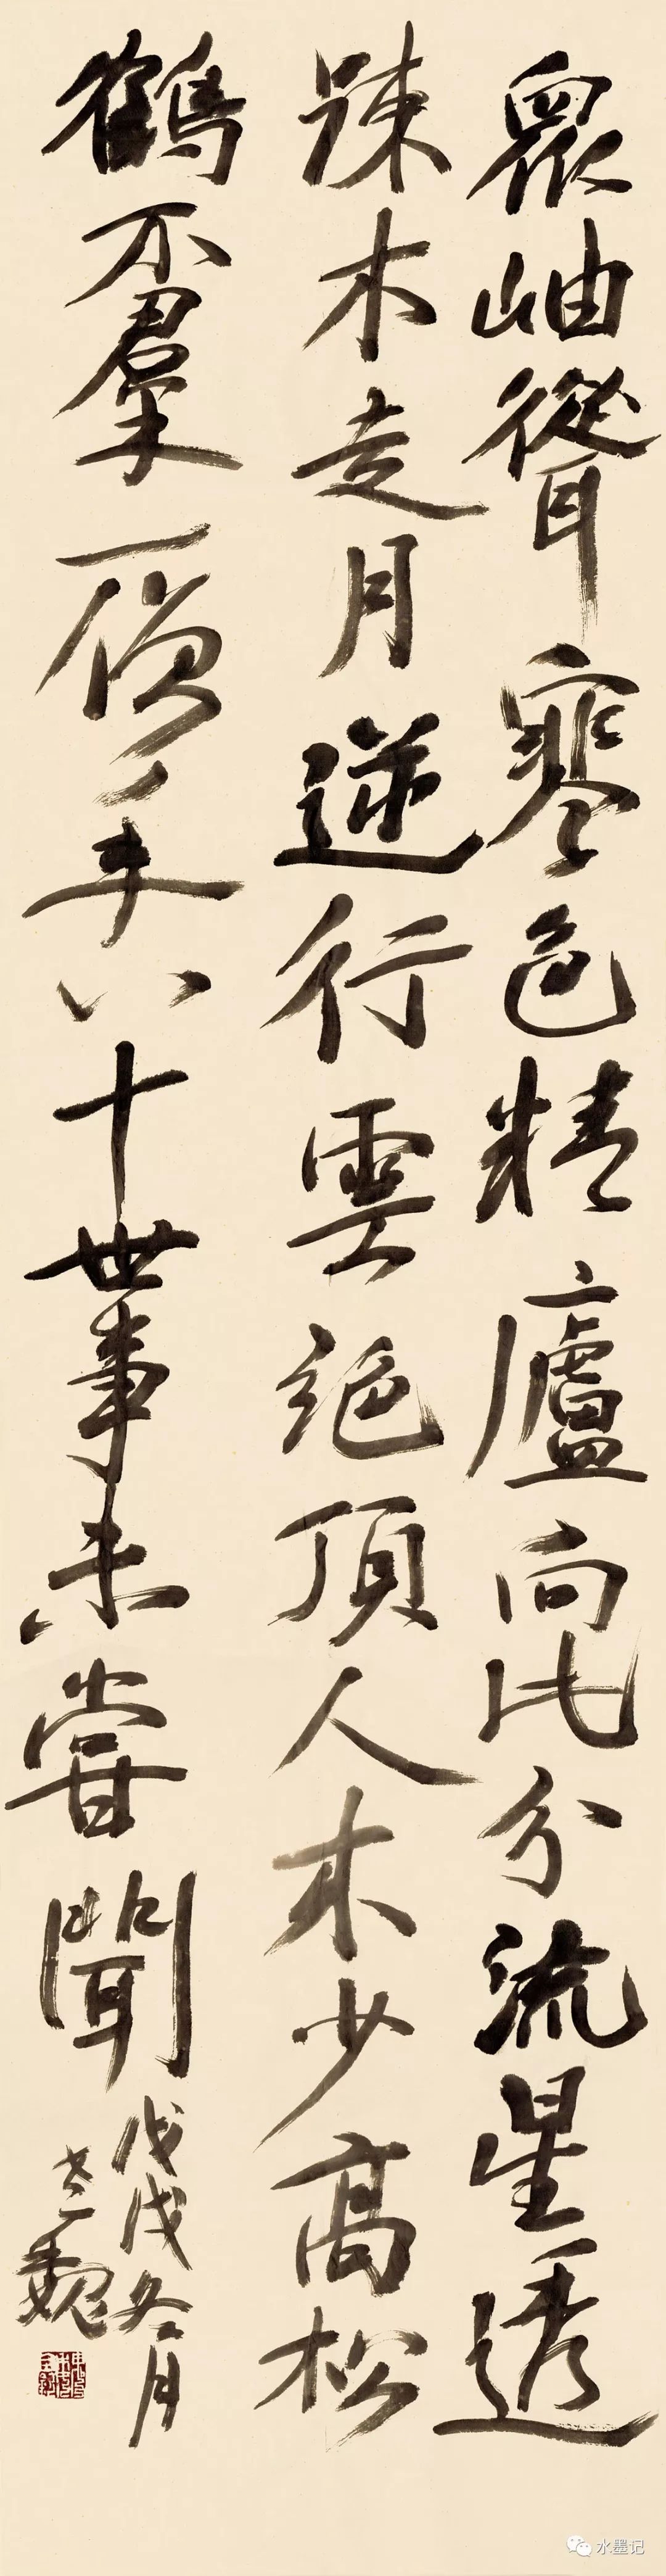 眾岫聳寒色精廬向此分流星透
踈木走月逆行雲絕頂人来少高松
鶴不羣一僧年八十世事未嘗聞
戊戌冬月
老魏
水墨记